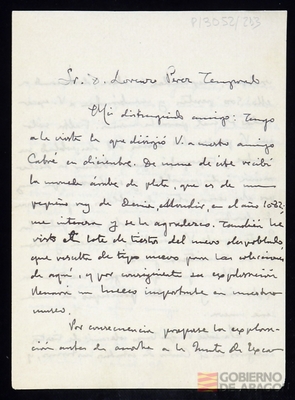 P13052/213
Sr. D. Lorenzo Pérez Temprado
Mi distinguido amigo: Tengo
a la vista la que dirigió V. a nuestro amigo
Cabré en diciembre. De mano de éste recibí
la moneda árabe de plata, que es de un
pequeño rey de Denia, en el año
me interesa y se la agradezco. También he
visto el lote de tiestos del nuevo despoblado,
que resulta de tipo nuevo para las colecciones
de aquí, y por consiguiente su exploración
llenaría un hueco importante en nuestro
museo.
Por consecuencia propuse la explora-
ción antes de anoche a la Junta de Exca-
GOBIERNO
DE ARAGON